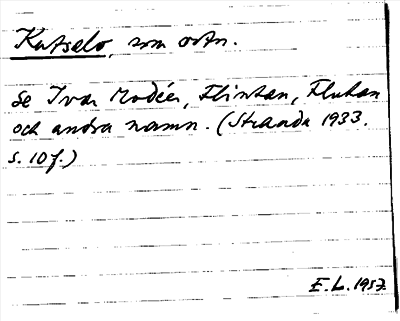 Katselo, som ortn.
Se Ivar Modéer, Flintan, Flukan
och andra namn. (Stranda 1933.
s. 10 f.)
E. L. 1957.